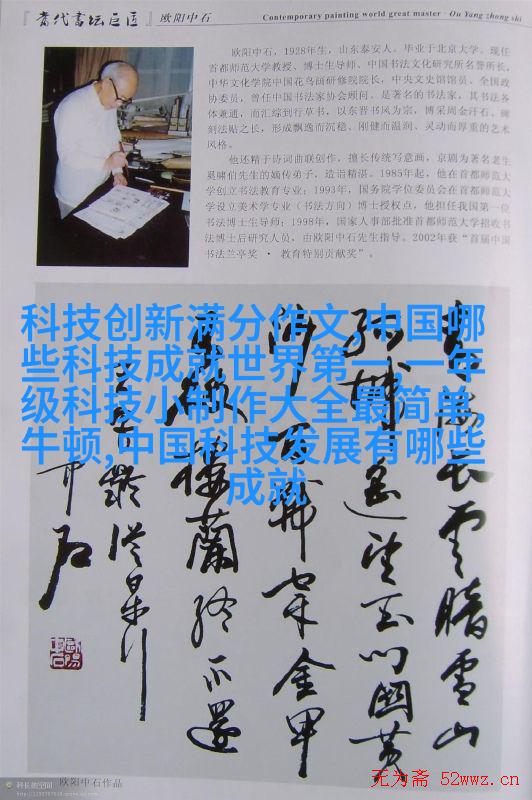 『当代书坛巨匠』 欧阳中石 Contemporary painting world great master · Ou Yang zhong shi
欧阳中石，1928年生，山东泰安人。毕业于北京大学。现任
首都师范大学教授、博士生导师、中国书法文化研究所名誉所长，
中华文化学院中国花鸟画研修院院长，中央文史馆馆员、全国政
协委员，曾任中国书法家协会顾问。是著名的书法家，其书法各
体兼通，而汇综到行草书，以东晋书风为宗，博采周金汗石、碑
刻法贴之长，形成飘逸而沉稳、刚健而温润、灵动而厚重的艺术
风格。
他还精于诗词曲联创作，擅长传统写意画，京剧为著名老生
奚啸伯先生的嫡传弟子，造诣精湛。1985年起，他在首都师范大
学创立书法教育专业；1993年，国务院学位委员会在首都师范大
学设立美术学专业（书法方向）博士授权点，他担任我国第一位
书法博士生导师；1998年，国家人事部批准首都师范大学招收书
法博士后研究人员，由欧阳中石先生指导。2002年获“首届中国
书法兰亭奖 · 教育特别贡献奖”。
科技创新满分作文,中国哪
些科技成就世界第一,一年
级科技小制作大全最简单,
牛顿,中国科技发展有哪些
成就
青海长云暗雪山
孤城遥望玉门关黄
沙百战穿金甲
楼兰终不还
王昌龄从军行
中石
欧阳中石作品
科长的空间
无为斋 52wwz.cn